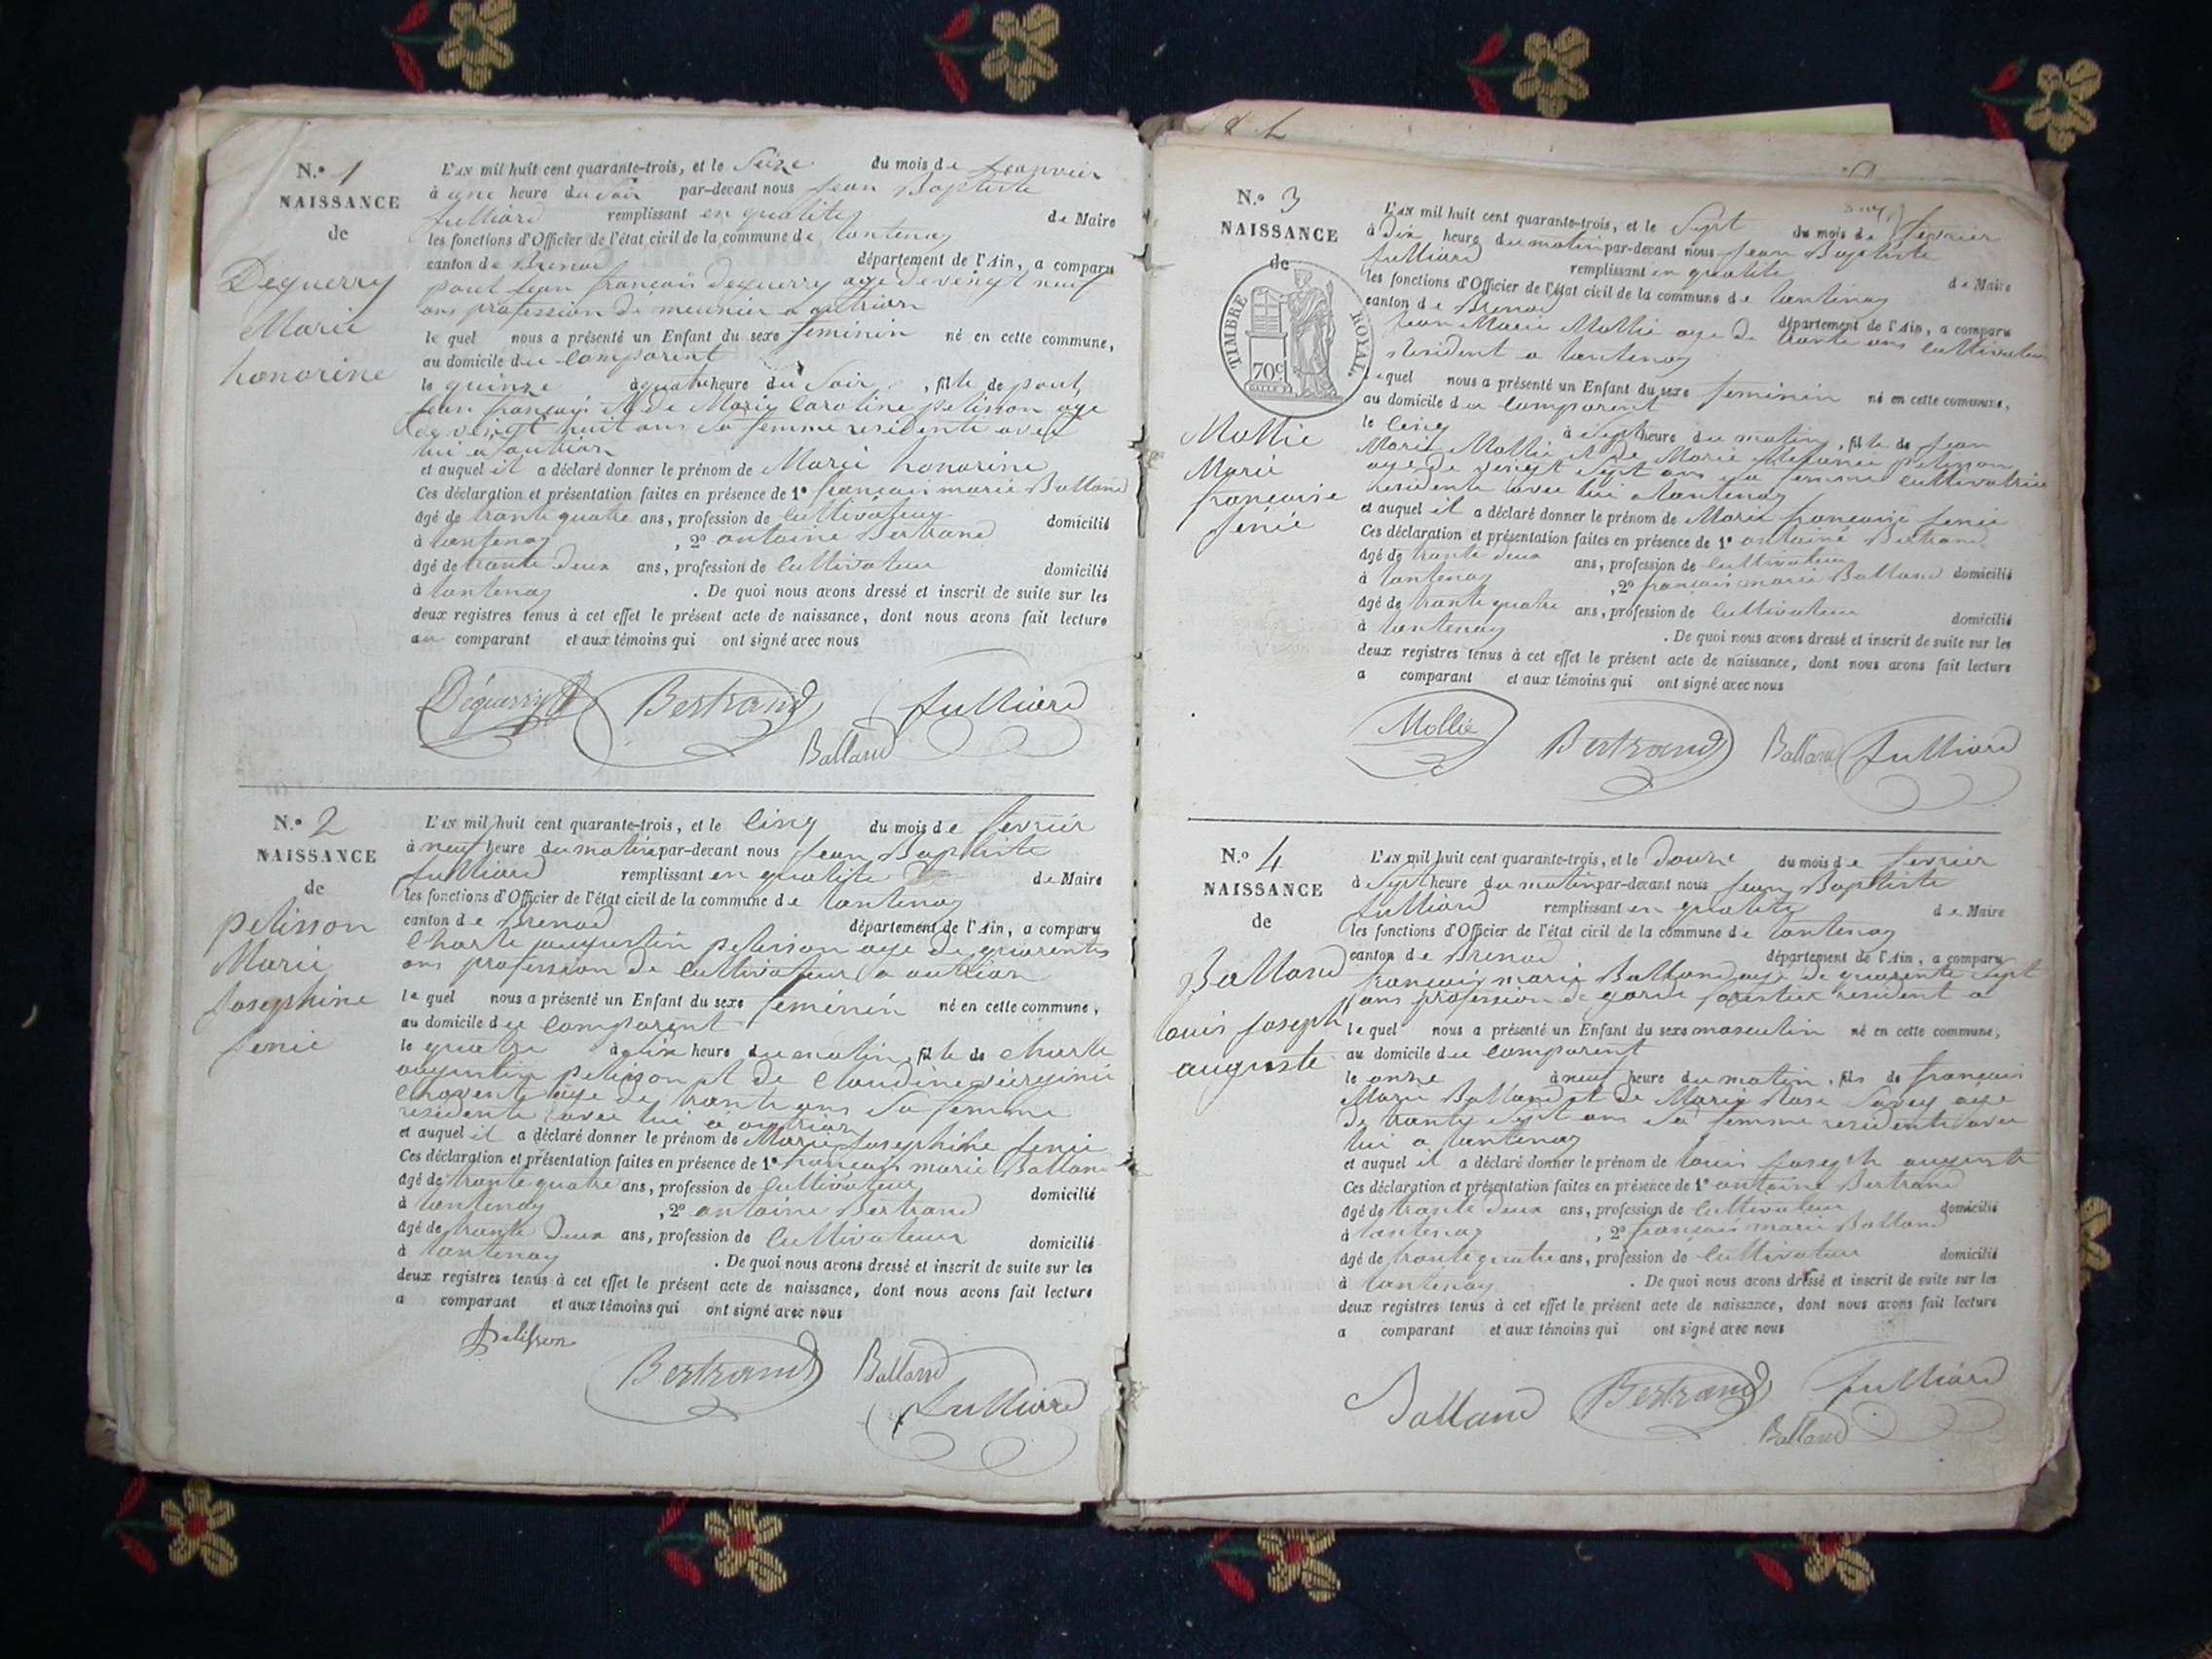 N.º 1
NAISSANCE
de
Deguerry
Marie
honorine
L'AN mil huit cent quarante-trois, et le Seize du mois de Janvier
à une heure du Soir par-devant nous Jean Baptiste
Julliard remplissant en qualité de Maire
les fonctions d'Officier de l'état civil de la commune de Lantenay
canton de Brenod département de l'Ain, a comparu
paul Jean françois Deguerry age de vingt neuf
ans profession de meunier a outriarn
le quel nous a présenté un Enfant du sexe feminin né en cette commune,
au domicile du comparent
le quinze à quatre heure du Soir, fille de paul,
Jean françois et de Marie Caroline pelisson age
de vingt huit ans Sa femme residente avec
lui a outriarn
et auquel il a déclaré donner le prénom de Marie honorine
Ces déclaration et présentation faites en présence de 1º françois marie Balland
âgé de trante quatre ans, profession de Cultivateur domicilié
à Lantenay, 2º antoine Bertrand
âgé de trante deux ans, profession de Cultivateur domicilié
à Lantenay. De quoi nous avons dressé et inscrit de suite sur les
deux registres tenus à cet effet le présent acte de naissance, dont nous avons fait lecture
au comparant et aux témoins qui ont signé avec nous
Déguerry Bertrand Julliard
Balland
N.º 2
NAISSANCE
de
pelisson
Marie
Josephine
fenie
L'AN mil huit cent quarante-trois, et le Cinq du mois de fevrier
à neuf heure du matin par-devant nous Jean Baptiste
Julliard remplissant en qualité de Maire
les fonctions d'Officier de l'état civil de la commune de Lantenay
canton de Brenod département de l'Ain, a comparu
Charle augustin pelisson age de quarente
ans profession de Cultivateur a outriarn
le quel nous a présenté un Enfant du sexe feminin né en cette commune,
au domicile du comparent
le quatre à dix heure du matin, fille de Charle
augustin pelisson et de Claudine virginie
age de trante ans Sa femme
residente avec lui a outriarn
et auquel il a déclaré donner le prénom de Marie Josephine fenie
Ces déclaration et présentation faites en présence de 1º françois marie Balland
âgé de trante quatre ans, profession de Cultivateur domicilié
à Lantenay, 2º antoine Bertrand
âgé de trante Deux ans, profession de Cultivateur domicilié
à Lantenay. De quoi nous avons dressé et inscrit de suite sur les
deux registres tenus à cet effet le présent acte de naissance, dont nous avons fait lecture
a comparant et aux témoins qui ont signé avec nous
Pelisson
Bertrand Balland
Julliard
N.º 3
NAISSANCE
de
TIMBRE ROYAL.
70c
Mollie
Marie
francoise
fenie
L'AN mil huit cent quarante-trois, et le Sept du mois de fevrier
à Dix heure du matin par-devant nous Jean Baptiste
Julliard remplissant en qualité de Maire
les fonctions d'Officier de l'état civil de la commune de Lantenay
canton de Brenod département de l'Ain, a comparu
Jean Marie Mollie age de trante ans Cultivateur
resident a Lantenay
le quel nous a présenté un Enfant du sexe feminin né en cette commune,
au domicile du comparent
le Cinq à Sept heure du matin, fille de Jean
Marie Mollie et de Marie pelisson
age de vingt Sept ans Sa femme Cultivatrice
residente avec lui a Lantenay
et auquel il a déclaré donner le prénom de Marie francoise fenie
Ces déclaration et présentation faites en présence de 1º antoine Bertrand
âgé de trante deux ans, profession de Cultivateur
à Lantenay, 2º françois marie Balland domicilié
âgé de trante quatre ans, profession de Cultivateur domicilié
à Lantenay. De quoi nous avons dressé et inscrit de suite sur les
deux registres tenus à cet effet le présent acte de naissance, dont nous avons fait lecture
a comparant et aux témoins qui ont signé avec nous
Mollie Bertrand Balland Julliard
N.º 4
NAISSANCE
de
Balland
Louis Joseph
auguste
L'AN mil huit cent quarante-trois, et le Douze du mois de fevrier
à Sept heure du matin par-devant nous Jean Baptiste
Julliard remplissant en qualité de Maire
les fonctions d'Officier de l'état civil de la commune de Lantenay
canton de Brenod département de l'Ain, a comparu
francois marie Balland age de quarente Sept
ans profession de garde forestier resident a
le quel nous a présenté un Enfant du sexe masculin né en cette commune,
au domicile du comparent
le onze à neuf heure du matin, fils de francois
Marie Balland et de Marie Rose Savey age
de trante Sept ans Sa femme residente avec
lui a Lantenay
et auquel il a déclaré donner le prénom de Louis Joseph auguste
Ces déclaration et présentation faites en présence de 1º antoine Bertrand
âgé de trante Deux ans, profession de Cultivateur domicilié
à Lantenay, 2º francois marie Balland
âgé de trante quatre ans, profession de Cultivateur domicilié
à Lantenay. De quoi nous avons dressé et inscrit de suite sur les
deux registres tenus à cet effet le présent acte de naissance, dont nous avons fait lecture
a comparant et aux témoins qui ont signé avec nous
Balland Bertrand Julliard
Balland